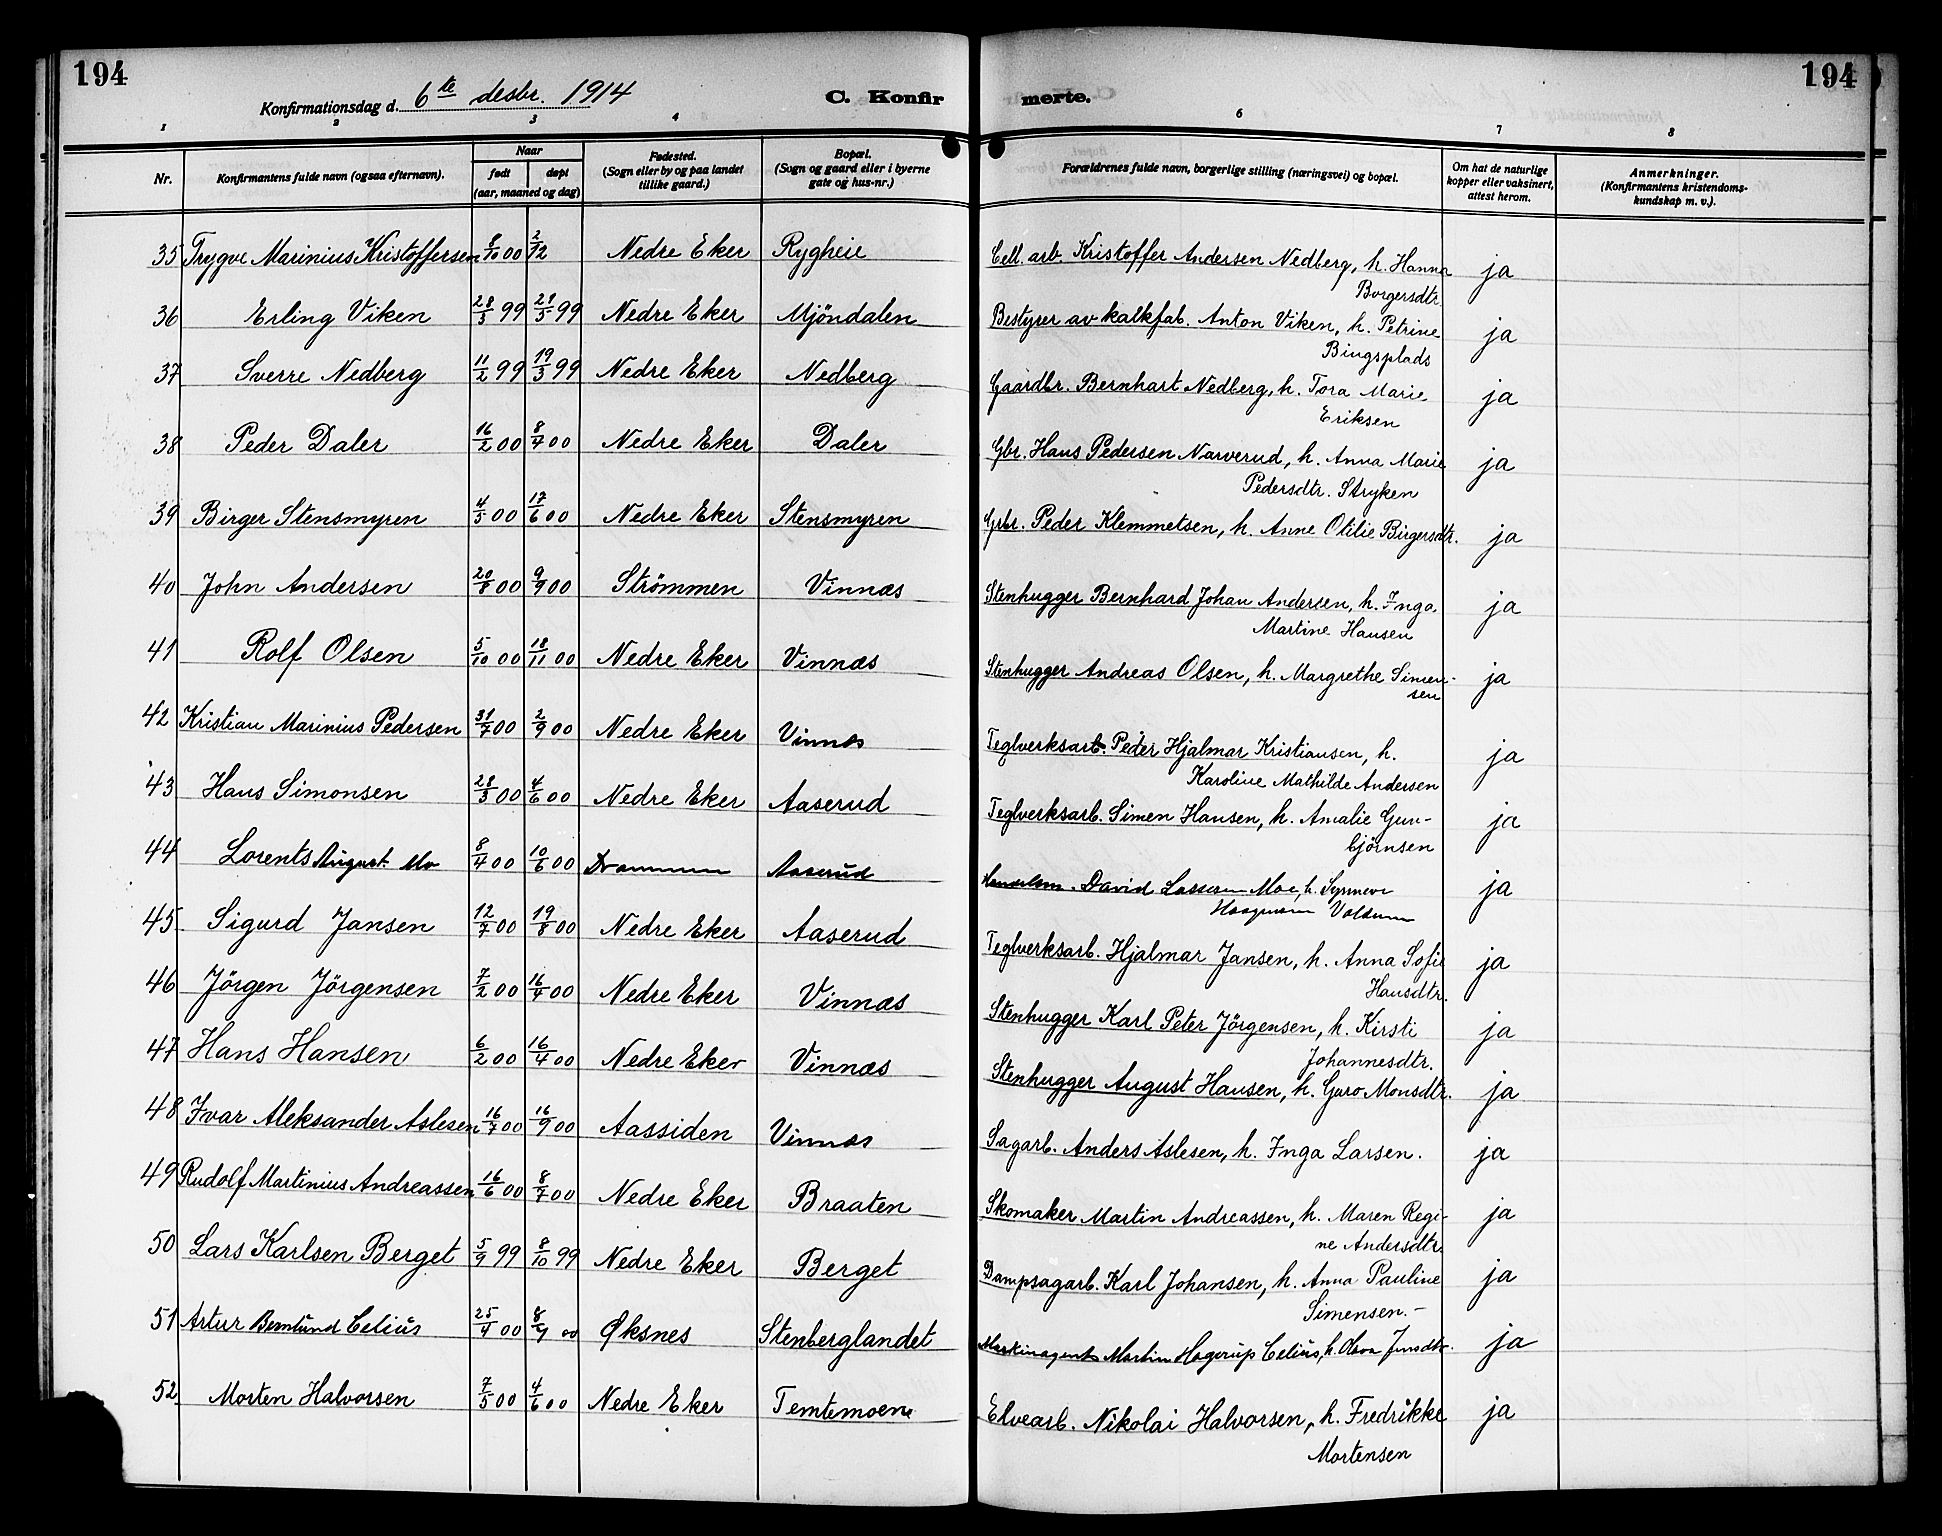 194
194
Konfirmationsdag d. 6te desbr. 1914
C. Konfir
merte.
1 2 3 4 6 7 8
Nr.
Konfirmantens fulde navn (ogsaa efternavn).
Naar
født døpt
(aar, maaned og dag)
Fødested.
(Sogn eller by og paa landet
tillike gaard.)
Bopæl.
(Sogn og gaard eller i byerne
gate og hus-nr.)
Forældrenes fulde navn, borgerlige stilling (næringsvei) og bopæl.
Om hat de naturlige
kopper eller vaksinert,
attest herom.
Anmerkninger.
(Konfirmantens kristendoms-
kundskap m. v.).
35 Trygve Marinius Kristoffersen 8/10 00 2/12 Nedre Eker Rygheie Cell. arb. Kristoffer Andersen Nedberg, h. Hanna ja
Borgersdtr.
36 Erling Viken 28/3 99 21/5 99 Nedre Eker Mjöndalen Bestyrer av kalkfab. Anton Viken, h. Petrine ja
Bingsplads
37 Sverre Nedberg 11/2 99 19/3 99 Nedre Eker Nedberg Gaardbr. Bernhart Nedberg, h. Tora Marie ja
Eriksen
38 Peder Daler 16/2 00 8/4 00 Nedre Eker Daler Gbr. Hans Pedersen Narverud, h. Anna Marie ja
Pedersdtr. Stryken
39 Birger Stensmyren 4/5 00 17/6 00 Nedre Eker Stensmyren Gbr. Peder Klemmetsen, h. Anne Otilie Birgersdtr. ja
40 John Andersen 20/8 00 9/9 00 Strömmen Vinnæs Stenhugger Bernhard Johan Andersen, h. Inga ja
Martine Hansen
41 Rolf Olsen 5/10 00 18/11 00 Nedre Eker Vinnæs Stenhugger Andreas Olsen, h. Margrethe Simen- ja
sen
42 Kristian Marinius Pedersen 31/7 00 2/9 00 Nedre Eker Vinnæs Teglverksarb. Peder Hjalmar Kristiansen, h. ja
Karoline Mathilde Andersen
43 Hans Simonsen 28/3 00 4/6 00 Nedre Eker Aaserud Teglverksarb. Simen Hansen, h. Amalie Gun- ja
björnsen
44 Lorents August Mo 8/4 00 10/6 00 Drammen Aaserud David Moe, h. ja
45 Sigurd Jansen 12/7 00 19/8 00 Nedre Eker Aaserud Teglverksarb. Hjalmar Jansen, h. Anna Sofie ja
Hansdtr.
46 Jörgen Jörgensen 7/2 00 16/4 00 Nedre Eker Vinnæs Stenhugger Karl Peter Jörgensen, h. Kirsti ja
Johannesdtr.
47 Hans Hansen 6/2 00 16/4 00 Nedre Eker Vinnæs Stenhugger August Hansen, h. Guro Monsdtr. ja
48 Ivar Aleksander Aslesen 16/7 00 16/9 00 Aassiden Vinnæs Sagarb. Anders Aslesen, h. Inga Larsen. ja
49 Rudolf Martinius Andreassen 16/6 00 8/7 00 Nedre Eker Braaten Skomaker Martin Andreassen, h. Maren Regi- ja
ne Andersdtr.
50 Lars Karlsen Berget 5/9 99 8/10 99 Nedre Eker Berget Dampsagarb. Karl Johansen, h. Anna Pauline ja
Simensen. -
51 Artur Berntund Celius 25/4 00 8/7 00 Øksnes Stenberglandet Maskinagent Martin Hagerup Celius, h. Jensdtr. ja
52 Morten Halvorsen 7/5 00 4/6 00 Nedre Eker Temtemoene Elvearb. Nikolai Halvorsen, h. Fredrikke ja
Mortensen